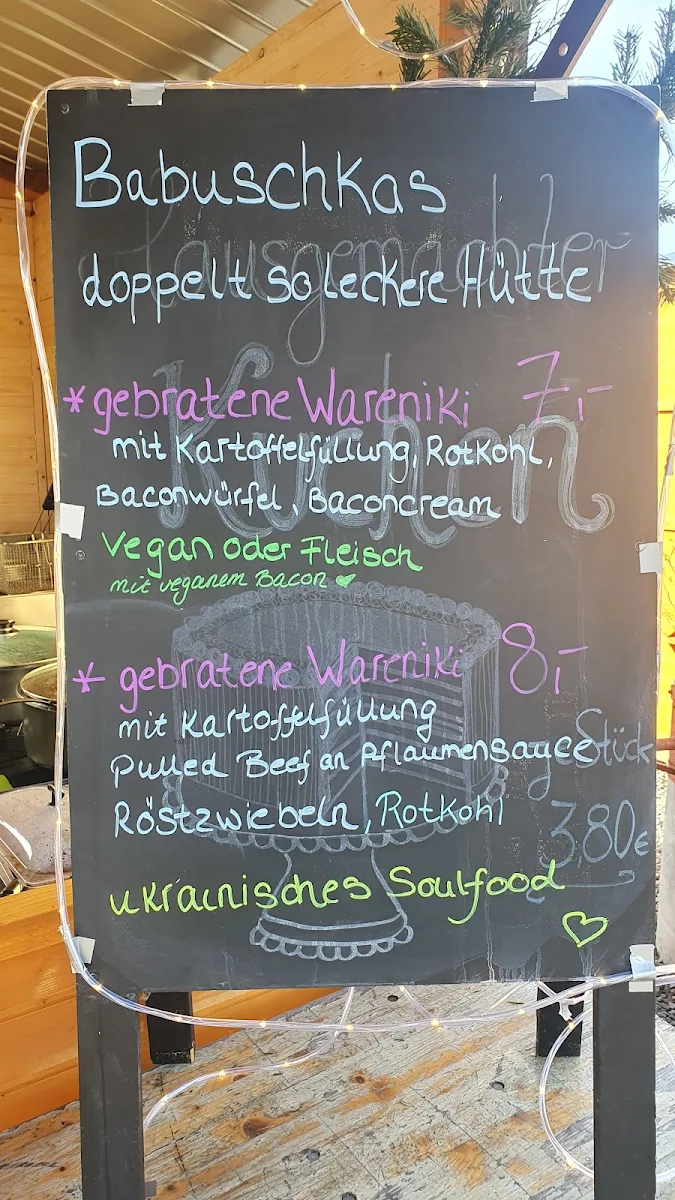 Babuschkas
Hausgemachter
doppelt so leckere Hütte
* gebratene Wareniki 7,-
Kuchen
mit Kartoffelfüllung, Rotkohl,
Baconwürfel, Baconcream
Vegan oder Fleisch
mit veganem Bacon
* gebratene Wareniki 8,-
mit Kartoffelfüllung
Pulled Beef an Pflaumensauce
je Stück
Röstzwiebeln, Rotkohl
3,80€
ukrainisches Soulfood